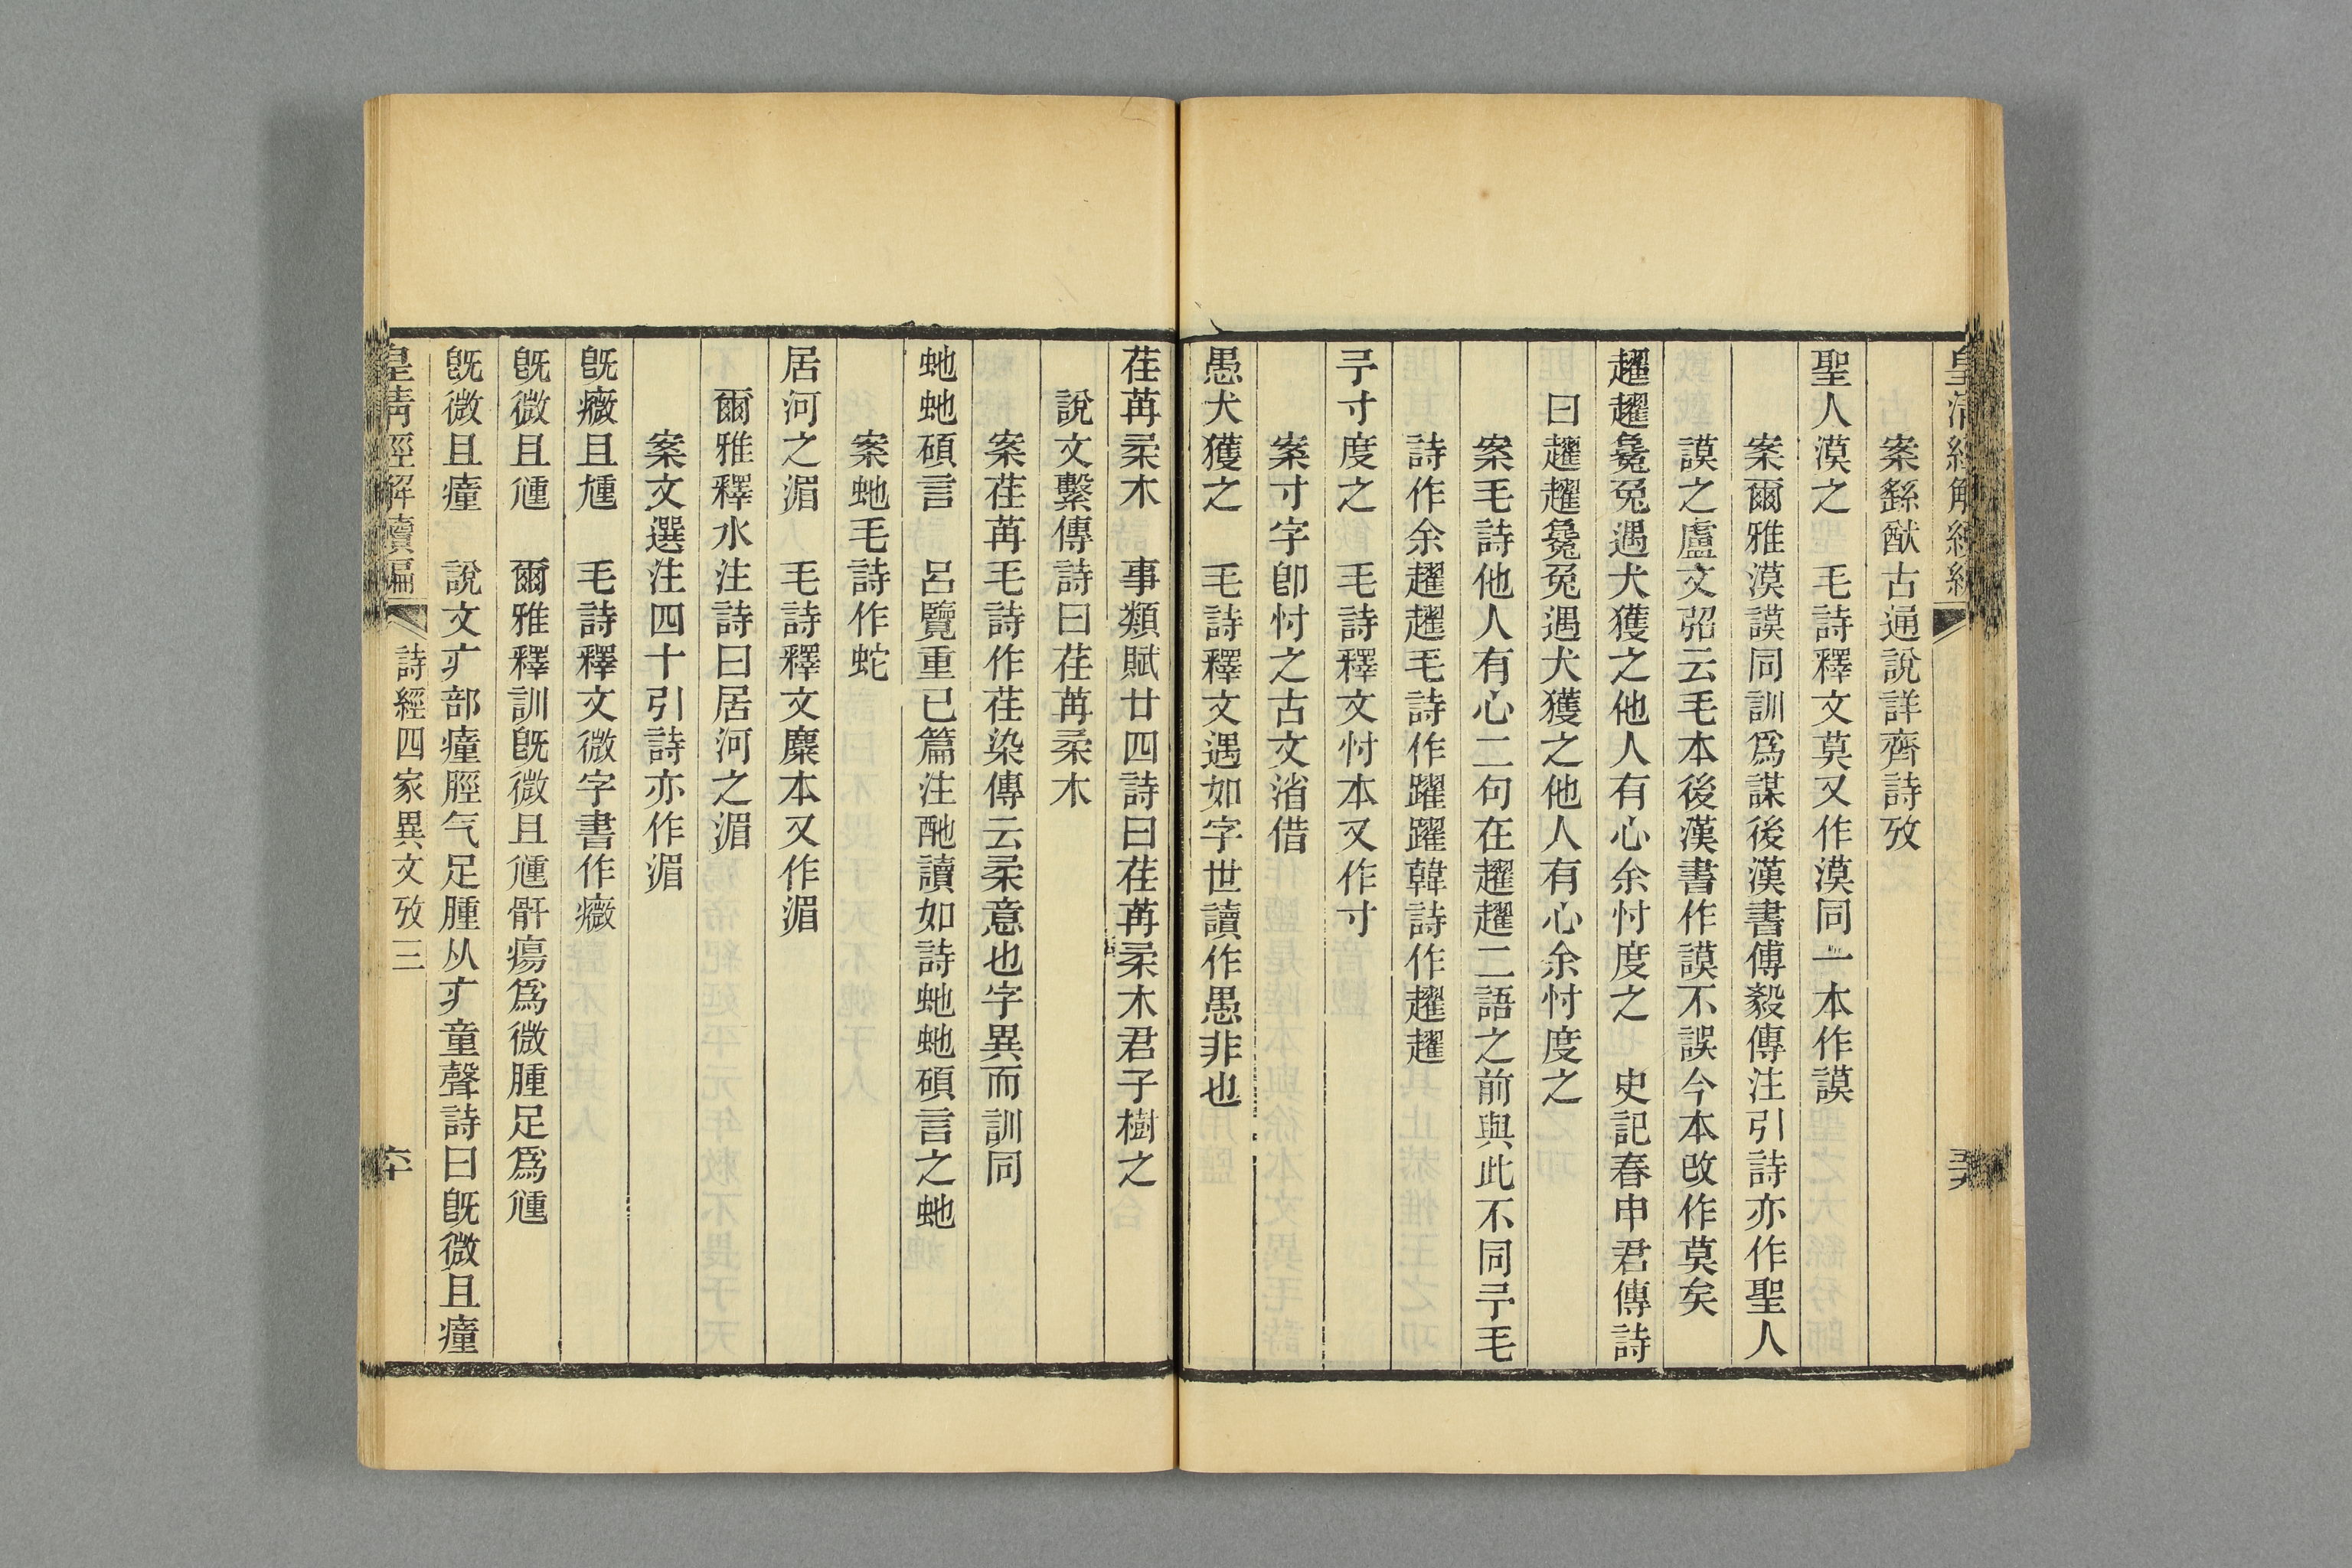 案繇猷古通說詳齊詩攷
聖人漠之　毛詩釋文莫又作漠同一本作謨
案爾雅漠謨同訓爲謀後漢書傅毅傳注引詩亦作聖人
謨之盧文弨云毛本後漢書作謨不誤今本改作莫矣
趯趯毚兔遇犬獲之他人有心余忖度之　史記春申君傳詩
曰趯趯毚兔遇犬獲之他人有心余忖度之
案毛詩他人有心二句在趯趯二語之前與此不同予毛
詩作余趯趯毛詩作躍躍韓詩作趯趯
予寸度之　毛詩釋文忖本又作寸
案寸字卽忖之古文渻借
愚犬獲之　毛詩釋文遇如字世讀作愚非也
荏苒柔木　事類賦廿四詩曰荏苒柔木君子樹之
說文繫傳詩曰荏苒柔木
案荏苒毛詩作荏染傳云柔意也字異而訓同
虵虵碩言　呂覽重已篇注酏讀如詩虵虵碩言之虵
案虵毛詩作蛇
居河之湄　毛詩釋文麋本又作湄
爾雅釋水注詩曰居河之湄
案文選注四十引詩亦作湄
旣癓且尰　毛詩釋文微字書作癓
旣微且尰　爾雅釋訓旣微且尰骭瘍爲微腫足爲尰
旣微且㿈　說文疒部㿈脛气足腫从疒童聲詩曰旣微且㿈
皇清經解續編　詩經四家異文攷三　卒